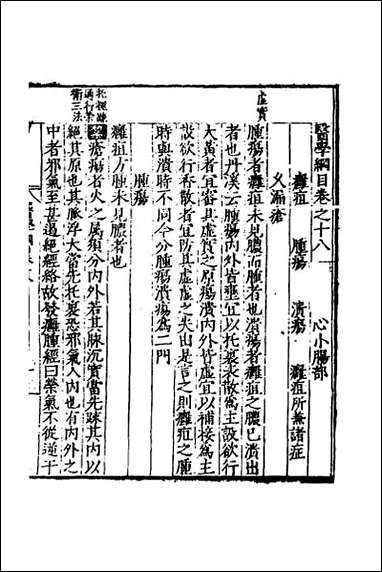 醫學綱目卷之十八　心小腸部
癰疽　腫瘍　潰瘍　癰疽所兼諸症
久漏瘡
虛實
腫瘍者癰疽未見膿而腫者也潰瘍者癰疽之膿已潰出
者也丹溪云腫瘍內外皆壅宜以托裏表散爲主設欲行
大黃者宜審其虛實之原瘍潰內外皆虛宜以補接爲主
設欲行香散者宜防其虛虛之失由是言之則癰疽之腫
時與潰時不同今分腫瘍潰瘍爲二門
腫瘍
癰疽方腫未見膿者也
托裏疎通行榮衛三法
瘡瘍者火之屬須分內外若其脉沉實當先踈其內以
絕其原也其脉浮大當先托裏恐邪氣入內也有內外之
中者邪氣至甚遏絕經絡故發癰腫經曰榮氣不從逆于